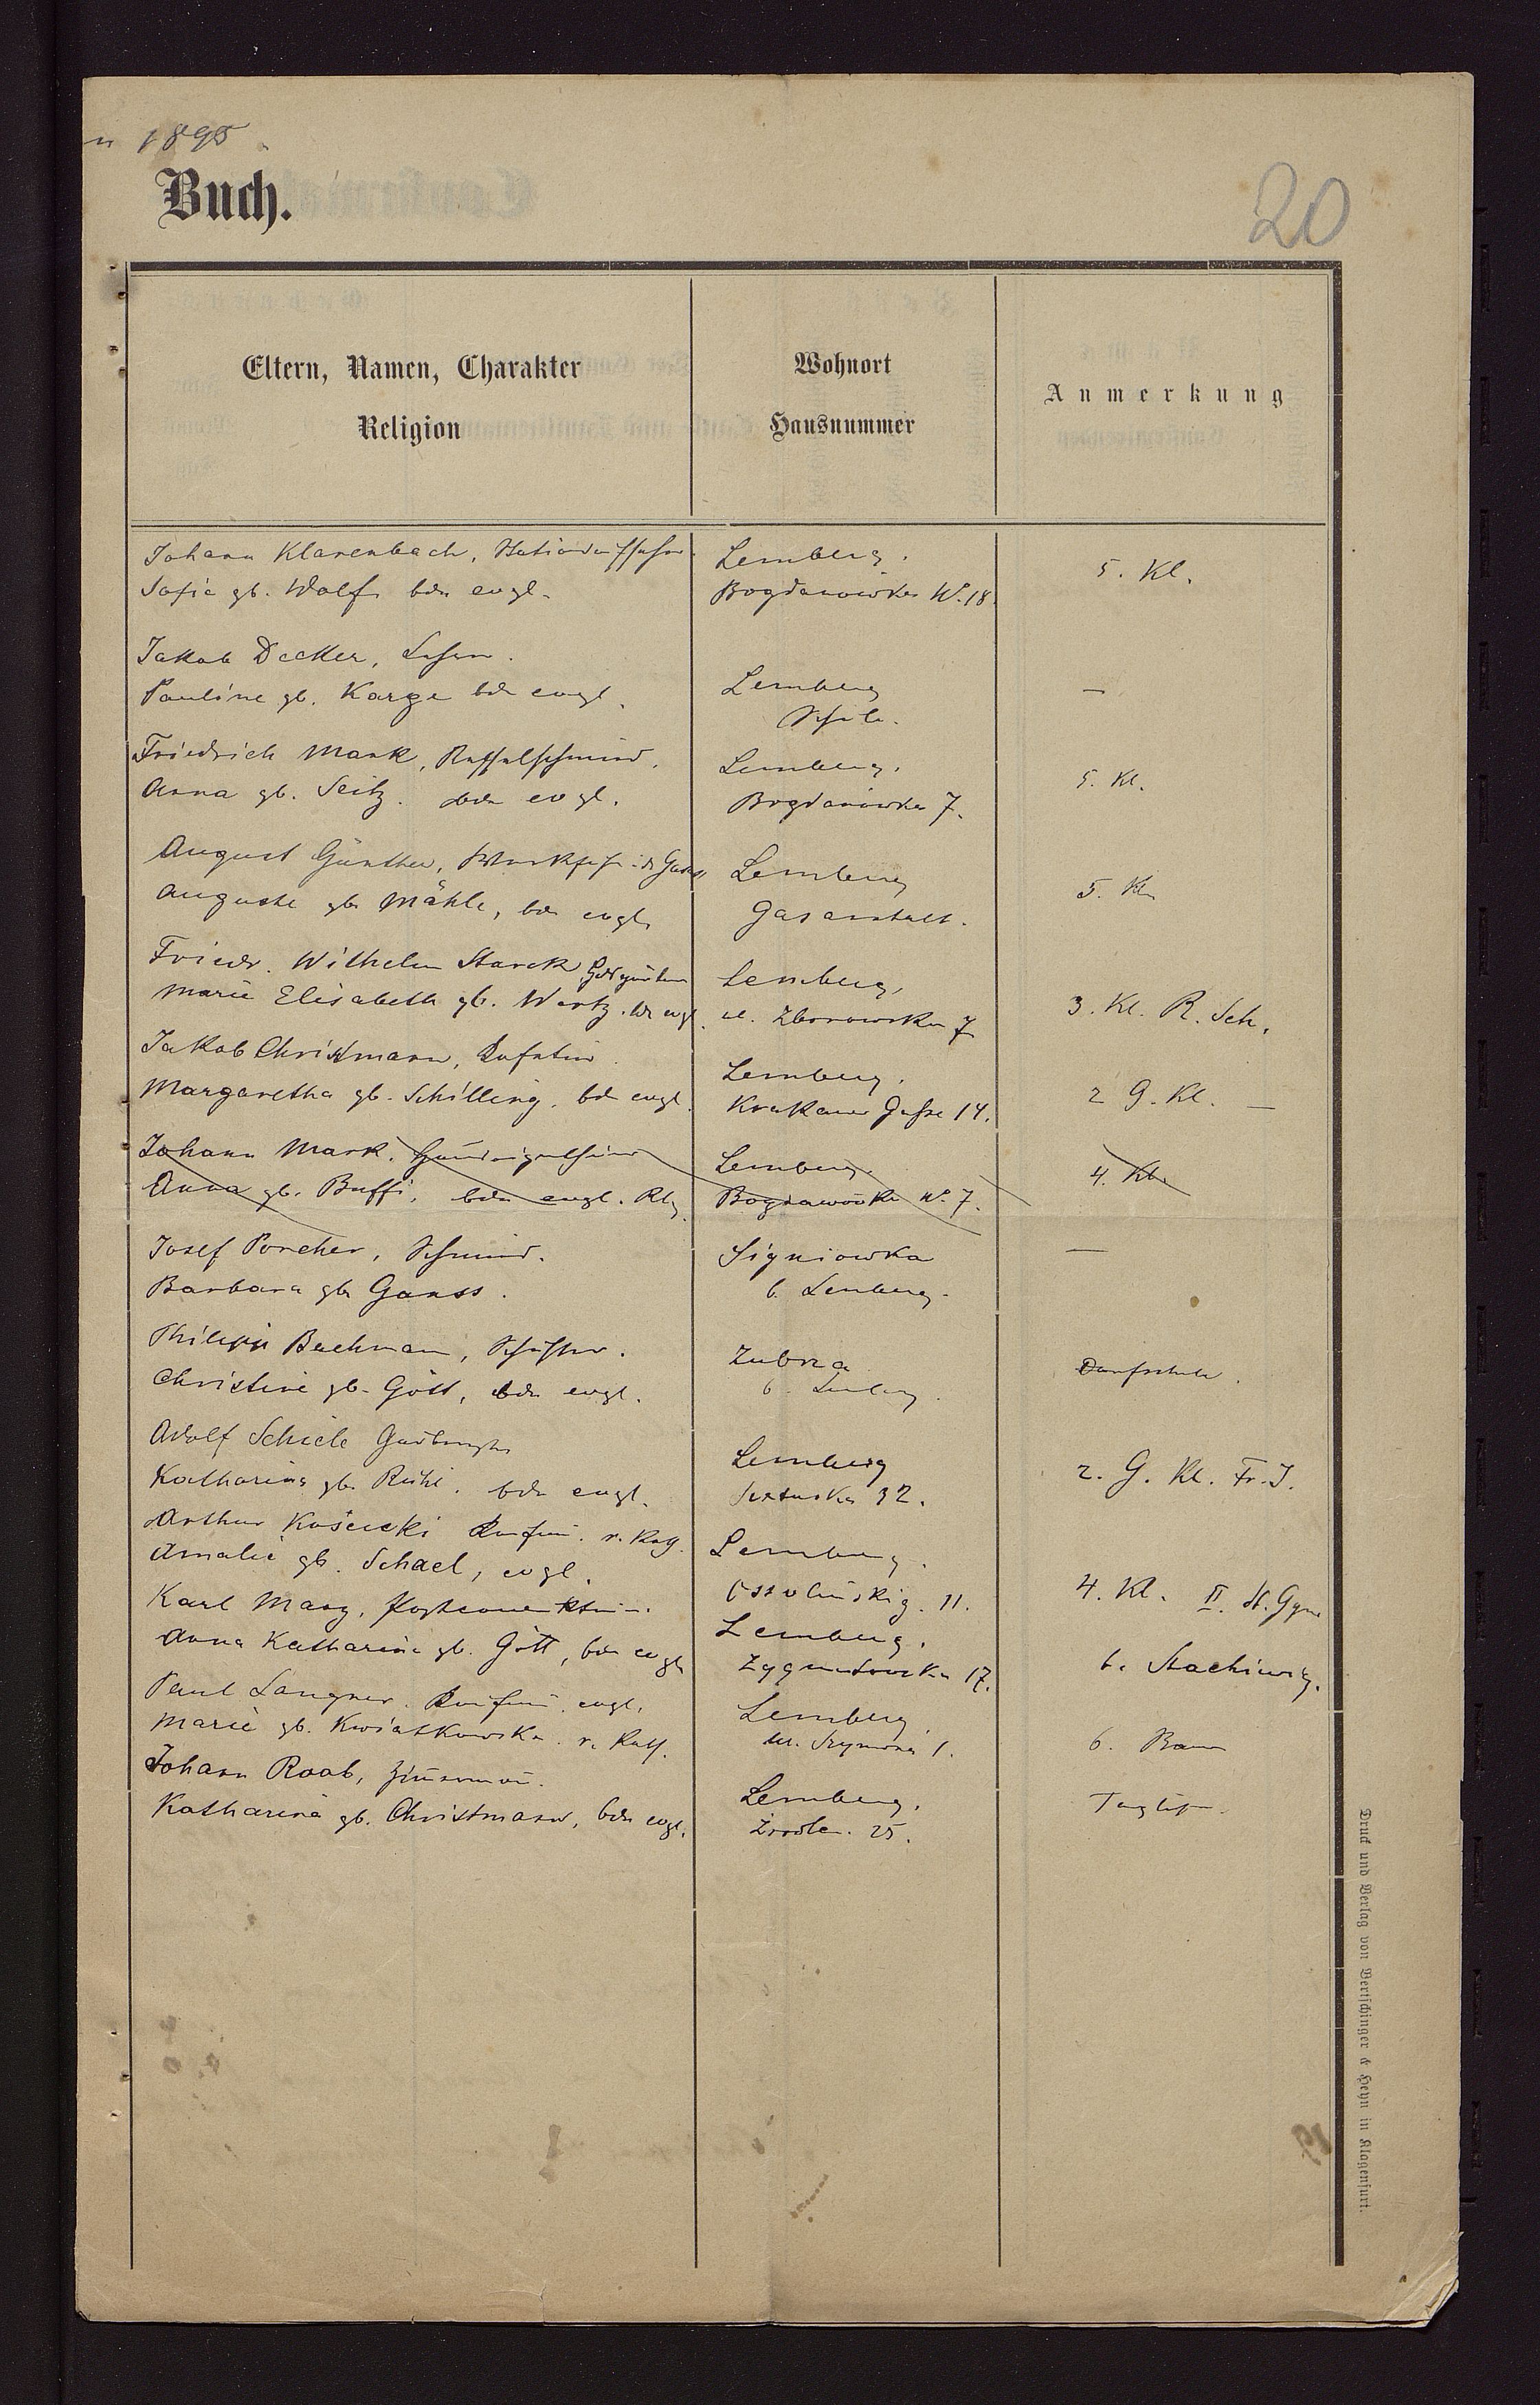 1895
Buch.
20
Eltern, Namen, Charakter
Religion
Wohnort
Hausnummer
Anmerkung
Johann Klarenbach,
Sofie gb. Wolf bde evgl.
Lemberg.
Bogdanówka N. 18.
5. Kl.
Jakob Decker, Lehrer.
Pauline gb. Karge bde evgl.
Lemberg
Schule.
—
Friedrich Mank, Kesselschmied.
Anna gb. Seitz. bde evgl.
Lemberg.
Bogdanówka 7.
5. Kl.
August Günther,
Auguste gb. Mähle, bde evgl.
Lemberg
Gasanstalt.
5. Kl.
Friedr. Wilhelm Starck
Marie Elisabeth gb. Wertz. bde evgl.
Lemberg,
ul. Zborowska 7
3. Kl. R. Sch.
Jakob Christmann,
Margaretha gb. Schilling, bde evgl.
Lemberg.
Krakauer Gasse 14.
2 G. Kl. —
Johann Mark.
Anna gb. Buffi, bde evgl. Rlg.
Lemberg.
Bogdanówka N. 7.
4. Kl.
Josef Porcher, Schmied.
Barbara gb Ganss.
Signiowka
b. Lemberg.
—
Philipp Bachmann,
Christine gb. Gött, bde evgl.
Zubrza
b. Lemberg.
Dorfschule.
Adolf Schiele
Katharina gb. Rühl. bde evgl.
Lemberg
32.
2. G. Kl. Fr. J.
Arthur Kościcki r. kath.
Amalie gb. Schael, evgl.
Lemberg.
Ossolińskig. 11.
4. Kl. II. St. Gym
Karl Marz,
Anna Katharina gb. Gött, bde evgl
Lemberg.
Zygmuntowska 17.
b. Stachiewicz.
Paul Langner. evgl.
Marie gb. Kwiatkowska. r. Kath.
Lemberg.
Szymona 1.
Johann Raab, Zimmermann.
Katharina gb. Christmann, bde evgl.
Lemberg.
25.
Druck und Verlag von Bertschinger & Heyn in Klagenfurt.